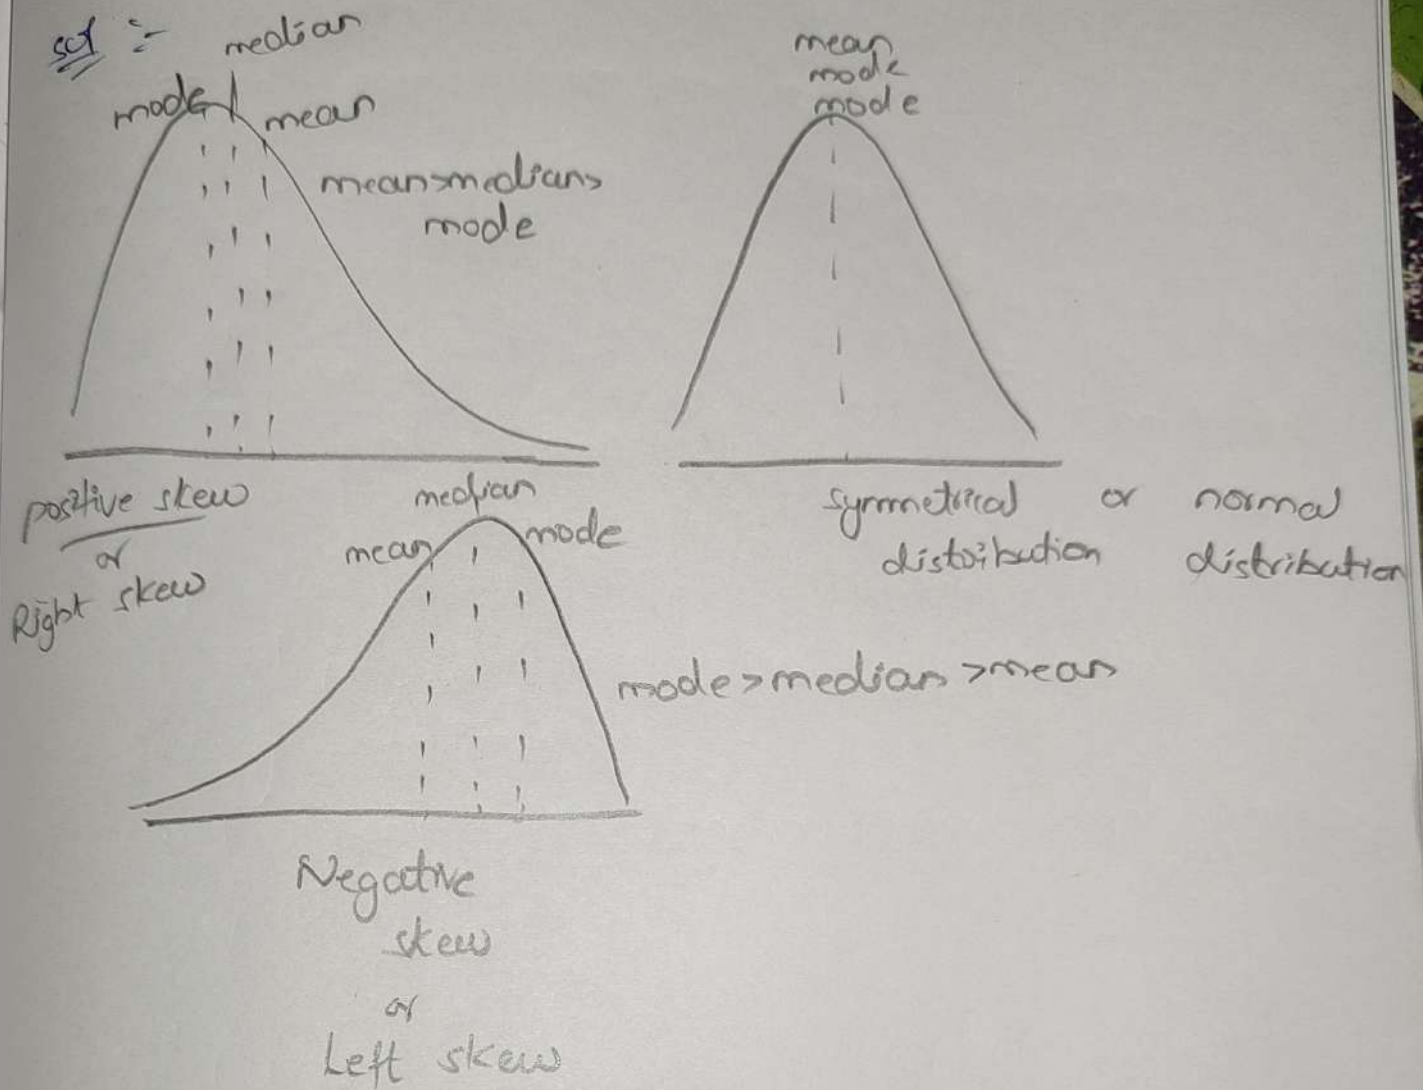 sol :-
median
mode
mean
mean>median>
mode
positive skew
or
Right skew
mean
mode
mode
symmetrical or normal
distribution distribution
median
mean
mode
mode>median>mean
Negative
skew
or
Left skew